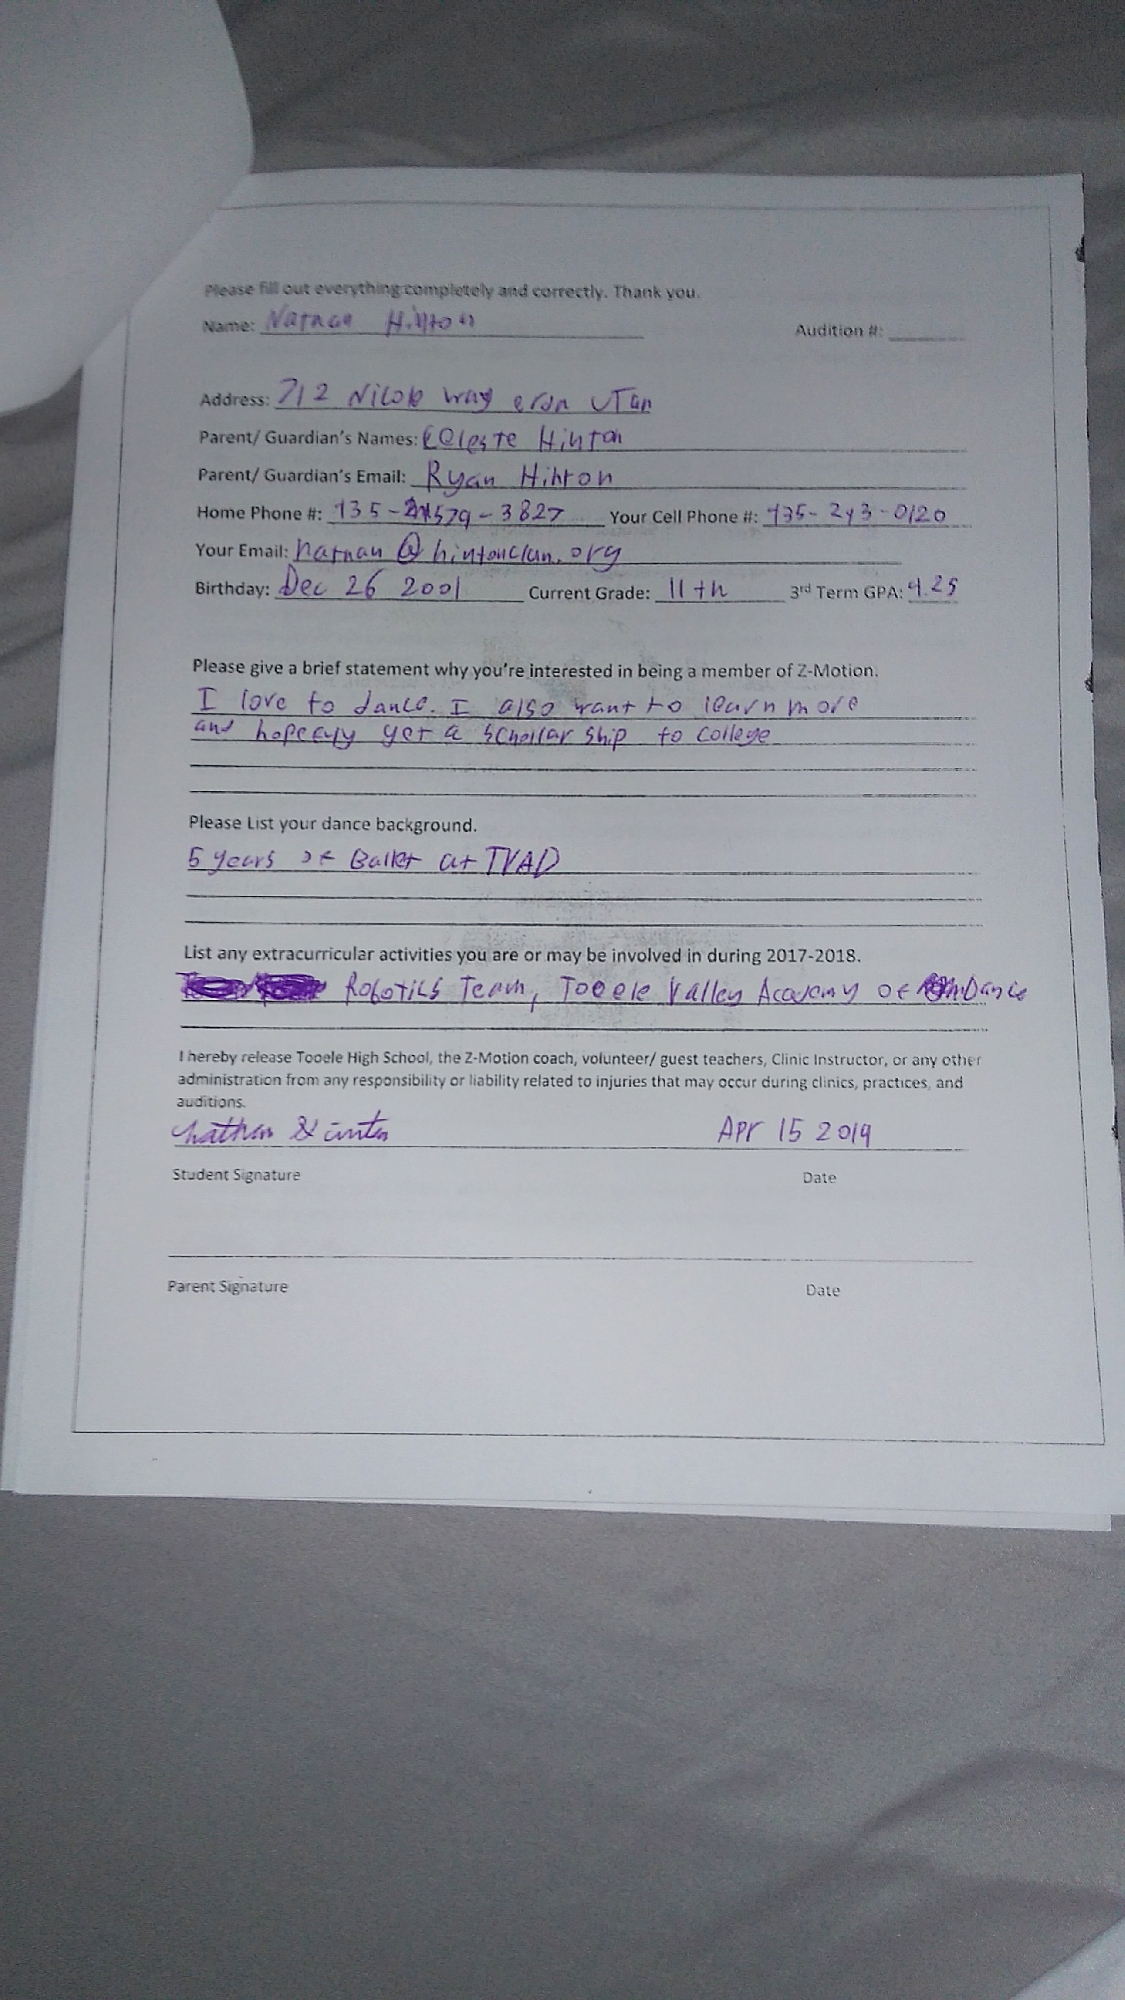 Please fill out everything completely and correctly. Thank you.
Name: Nathan Hinton Audition #:
Address: 712 Nicole Way erda UTah
Parent/ Guardian's Names: Celeste Hinton
Parent/ Guardian's Email: Ryan Hinton
Home Phone #: 435-579-3827 Your Cell Phone #: 435-243-0120
Your Email: nathan@hintonclan.org
Birthday: Dec 26 2001 Current Grade: 11th 3rd Term GPA:
Please give a brief statement why you're interested in being a member of Z-Motion.
I love to dance. I also want to learn more
and hopefully get a schollar ship to college
Please List your dance background.
5 years of Ballet at TVAD
List any extracurricular activities you are or may be involved in during 2017-2018.
Robotics Team, Tooele Valley Academy of Dance
I hereby release Tooele High School, the Z-Motion coach, volunteer/ guest teachers, Clinic Instructor, or any other
administration from any responsibility or liability related to injuries that may occur during clinics, practices, and
auditions.
Nathan Hinton Apr 15 2019
Student Signature Date
Parent Signature Date